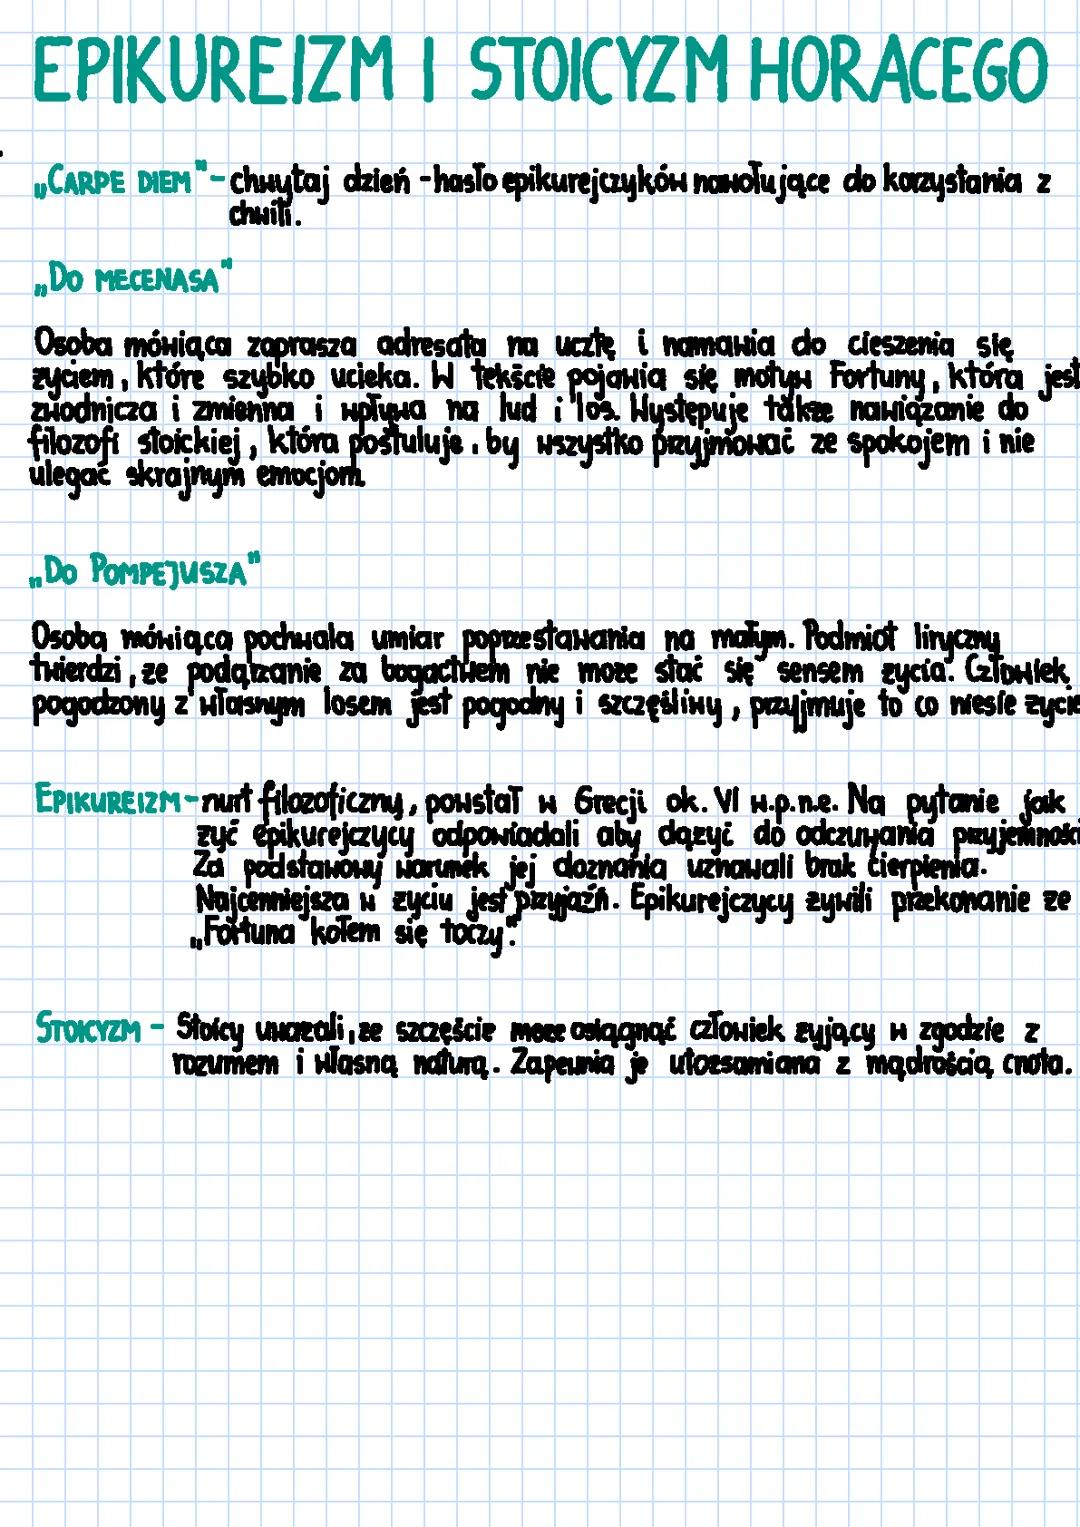 EPIKUREIZM I STOICYZM HORACEGO
„CARPE DIEM" - chwytaj dzień - hasło epikurejczyków nawołujące do korzystania z
chwili.
„DO MECENASA"
Osoba mówiąca zaprasza adresata na ucztę i namawia do cieszenia się
życiem, które szybko ucieka. W tekście pojawia się motyw Fortuny, która jest
zwodnicza i zmienna i wpływa na lud i los. Występuje także nawiązanie do
filozofi stoickiej, która postuluje, by wszystko przyjmować ze spokojem i nie
ulegać skrajnym emocjom.
„DO POMPEJUSZA"
Osobą mówiąca pochwala umiar poprzestawania na małym. Podmiot liryczny
twierdzi, że podążanie za bogactwem nie może stać się sensem życia. Człowiek
pogodzony z własnym losem jest pogodny i szczęśliwy, przyjmuje to co niesie życie
EPIKUREIZM - nurt filozoficzny, powstał w Grecji ok. VI w.p.n.e. Na pytanie jak
żyć epikurejczycy odpowiadali aby dążyć do odczuwania przyjemności
Za podstawowy warunek jej doznania uznawali brak cierpienia.
Najcenniejsza w życiu jest przyjaźń. Epikurejczycy żywili przekonanie że
„Fortuna kołem się toczy".
STOICYZM - Stoicy uważali, że szczęście może osiągnąć człowiek żyjący w zgodzie z
rozumem i własną naturą. Zapewnia je utożsamiana z mądrością cnota.